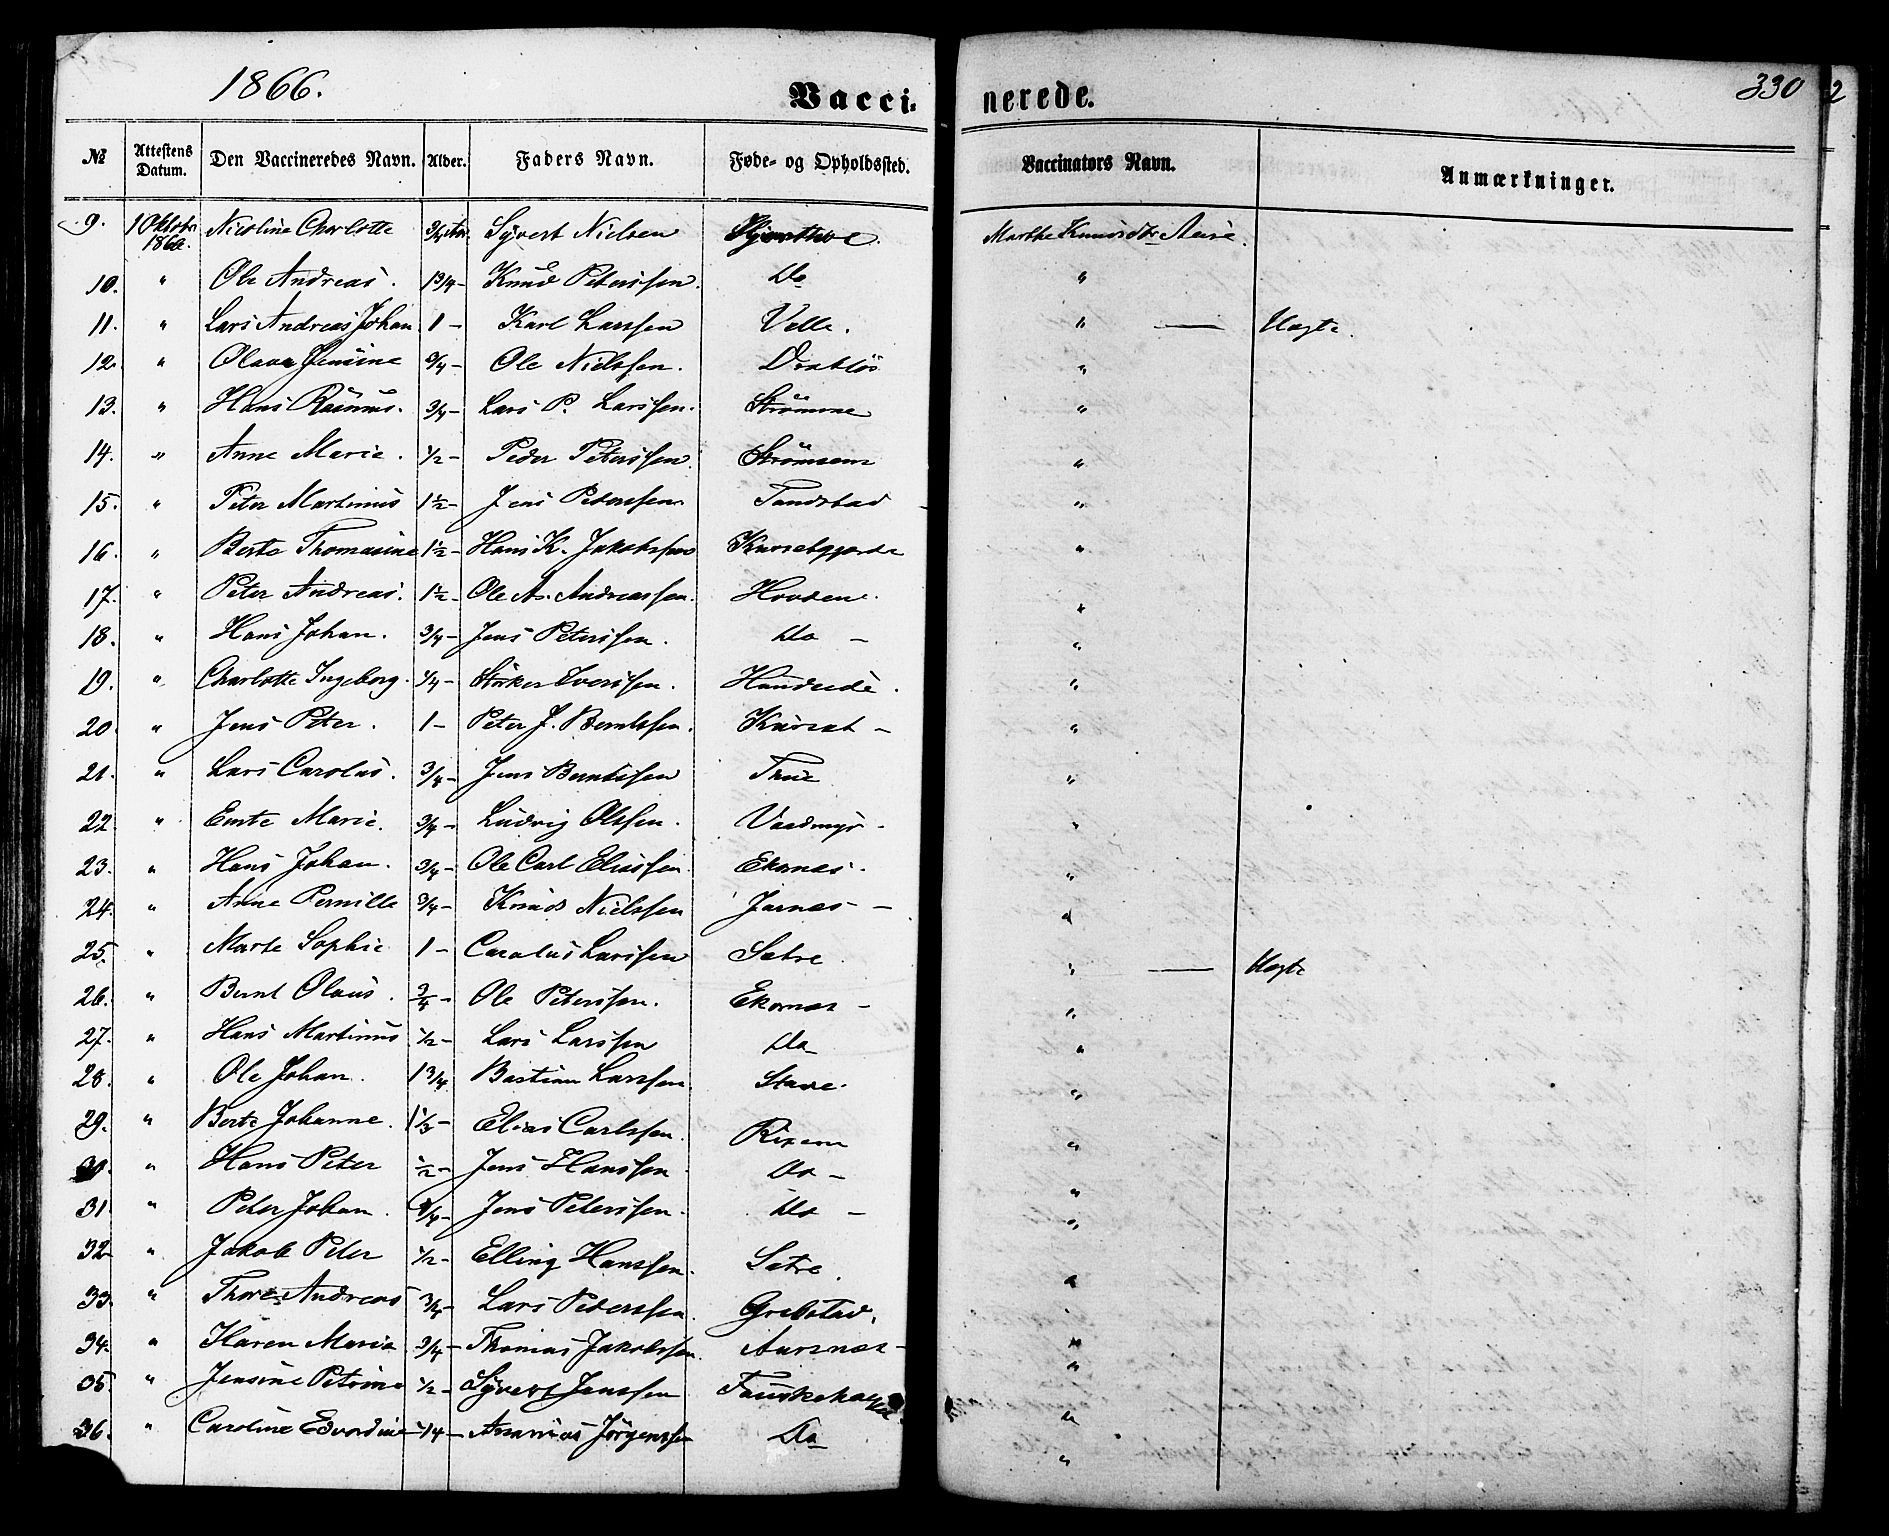 1866.
Vacci- nerede. 330
№ Attestens Datum. Den Vaccineredes Navn. Alder. Faders Navn. Føde- og Opholdssted. Vaccinators Navn. Anmærkninger.
9. 1 Oktobr 1866 Nicoline Charlotte 3/4 Aar. Syvert Nielsen Marthe Knudsdtr Aure.
10. " Ole Andreas. 1 3/4 - Knud Peterssen. Do "
11. " Lars Andreas Johan 1 - Karl Larssen Velle. " — Uægte.
12. " Olava Jensine 3/4 - Ole Nielssen. "
13. " Hans Rasmus. 3/4 - Lars P. Larssen. Strømme "
14. " Anne Marie. 1/2 - Peder Peterssen. Strømsem "
15. " Peter Martinus 1 1/2 - Jens Peterssen. Tandstad "
16. " Berte Thomasine 1 1/2 - Hans K. Jakobssen "
17. " Peter Andreas. 1 1/2 - Ole A. Andreassen. Hovden. "
18. " Hans Johan. 3/4 - Jens Peterssen. Do - "
19. " Charlotte Ingeborg. 1/4 - Iverssen. Hundeide. "
20. " Jens Peter. 1 - Peter J. Berntssen. - "
21. " Lars Carolus. 3/4 - Jens Berntssen "
22. " Marie. 3/4 - Ludvig Olssen. Vaadmyr - "
23. " Hans Johan. 3/4 - Ole Carl Eliassen. Ekornes. "
24. " Anne Pernille 3/4 - Knud Nielssen Jarnes - "
25. " Marte Sophie 1 - Carolus Larssen Sætre " — Uægte
26. " Bernt Olaus. 3/4 - Ole Peterssen. Ekornes - "
27. " Hans Martinus 1/2 - Lars Larssen Do "
28. " Ole Johan. 1 3/4 Bastian Larssen. Stave. "
29. " Berte Johanne. 1 1/3 - Elias Carlssen. "
30. " Hans Peter 1/2 - Jens Hanssen Do - "
31 " Peter Johan. 3/4 - Jens Peterssen. Do - "
32 " Jakob Peter 1/2 - Elling Hanssen. Sætre. "
33. " Thore Andreas 3/4 - Lars Pederssen. Grebstad. "
34. " Karen Maria 3/4 - Thomas Jakobssen. Aursnes - "
35. " Jensine Petrine 1/2 - Syvert Jenssen Fauskehagen "
36. " Caroline Edvardine 1/4 - Ananias Jørgenssen Do "